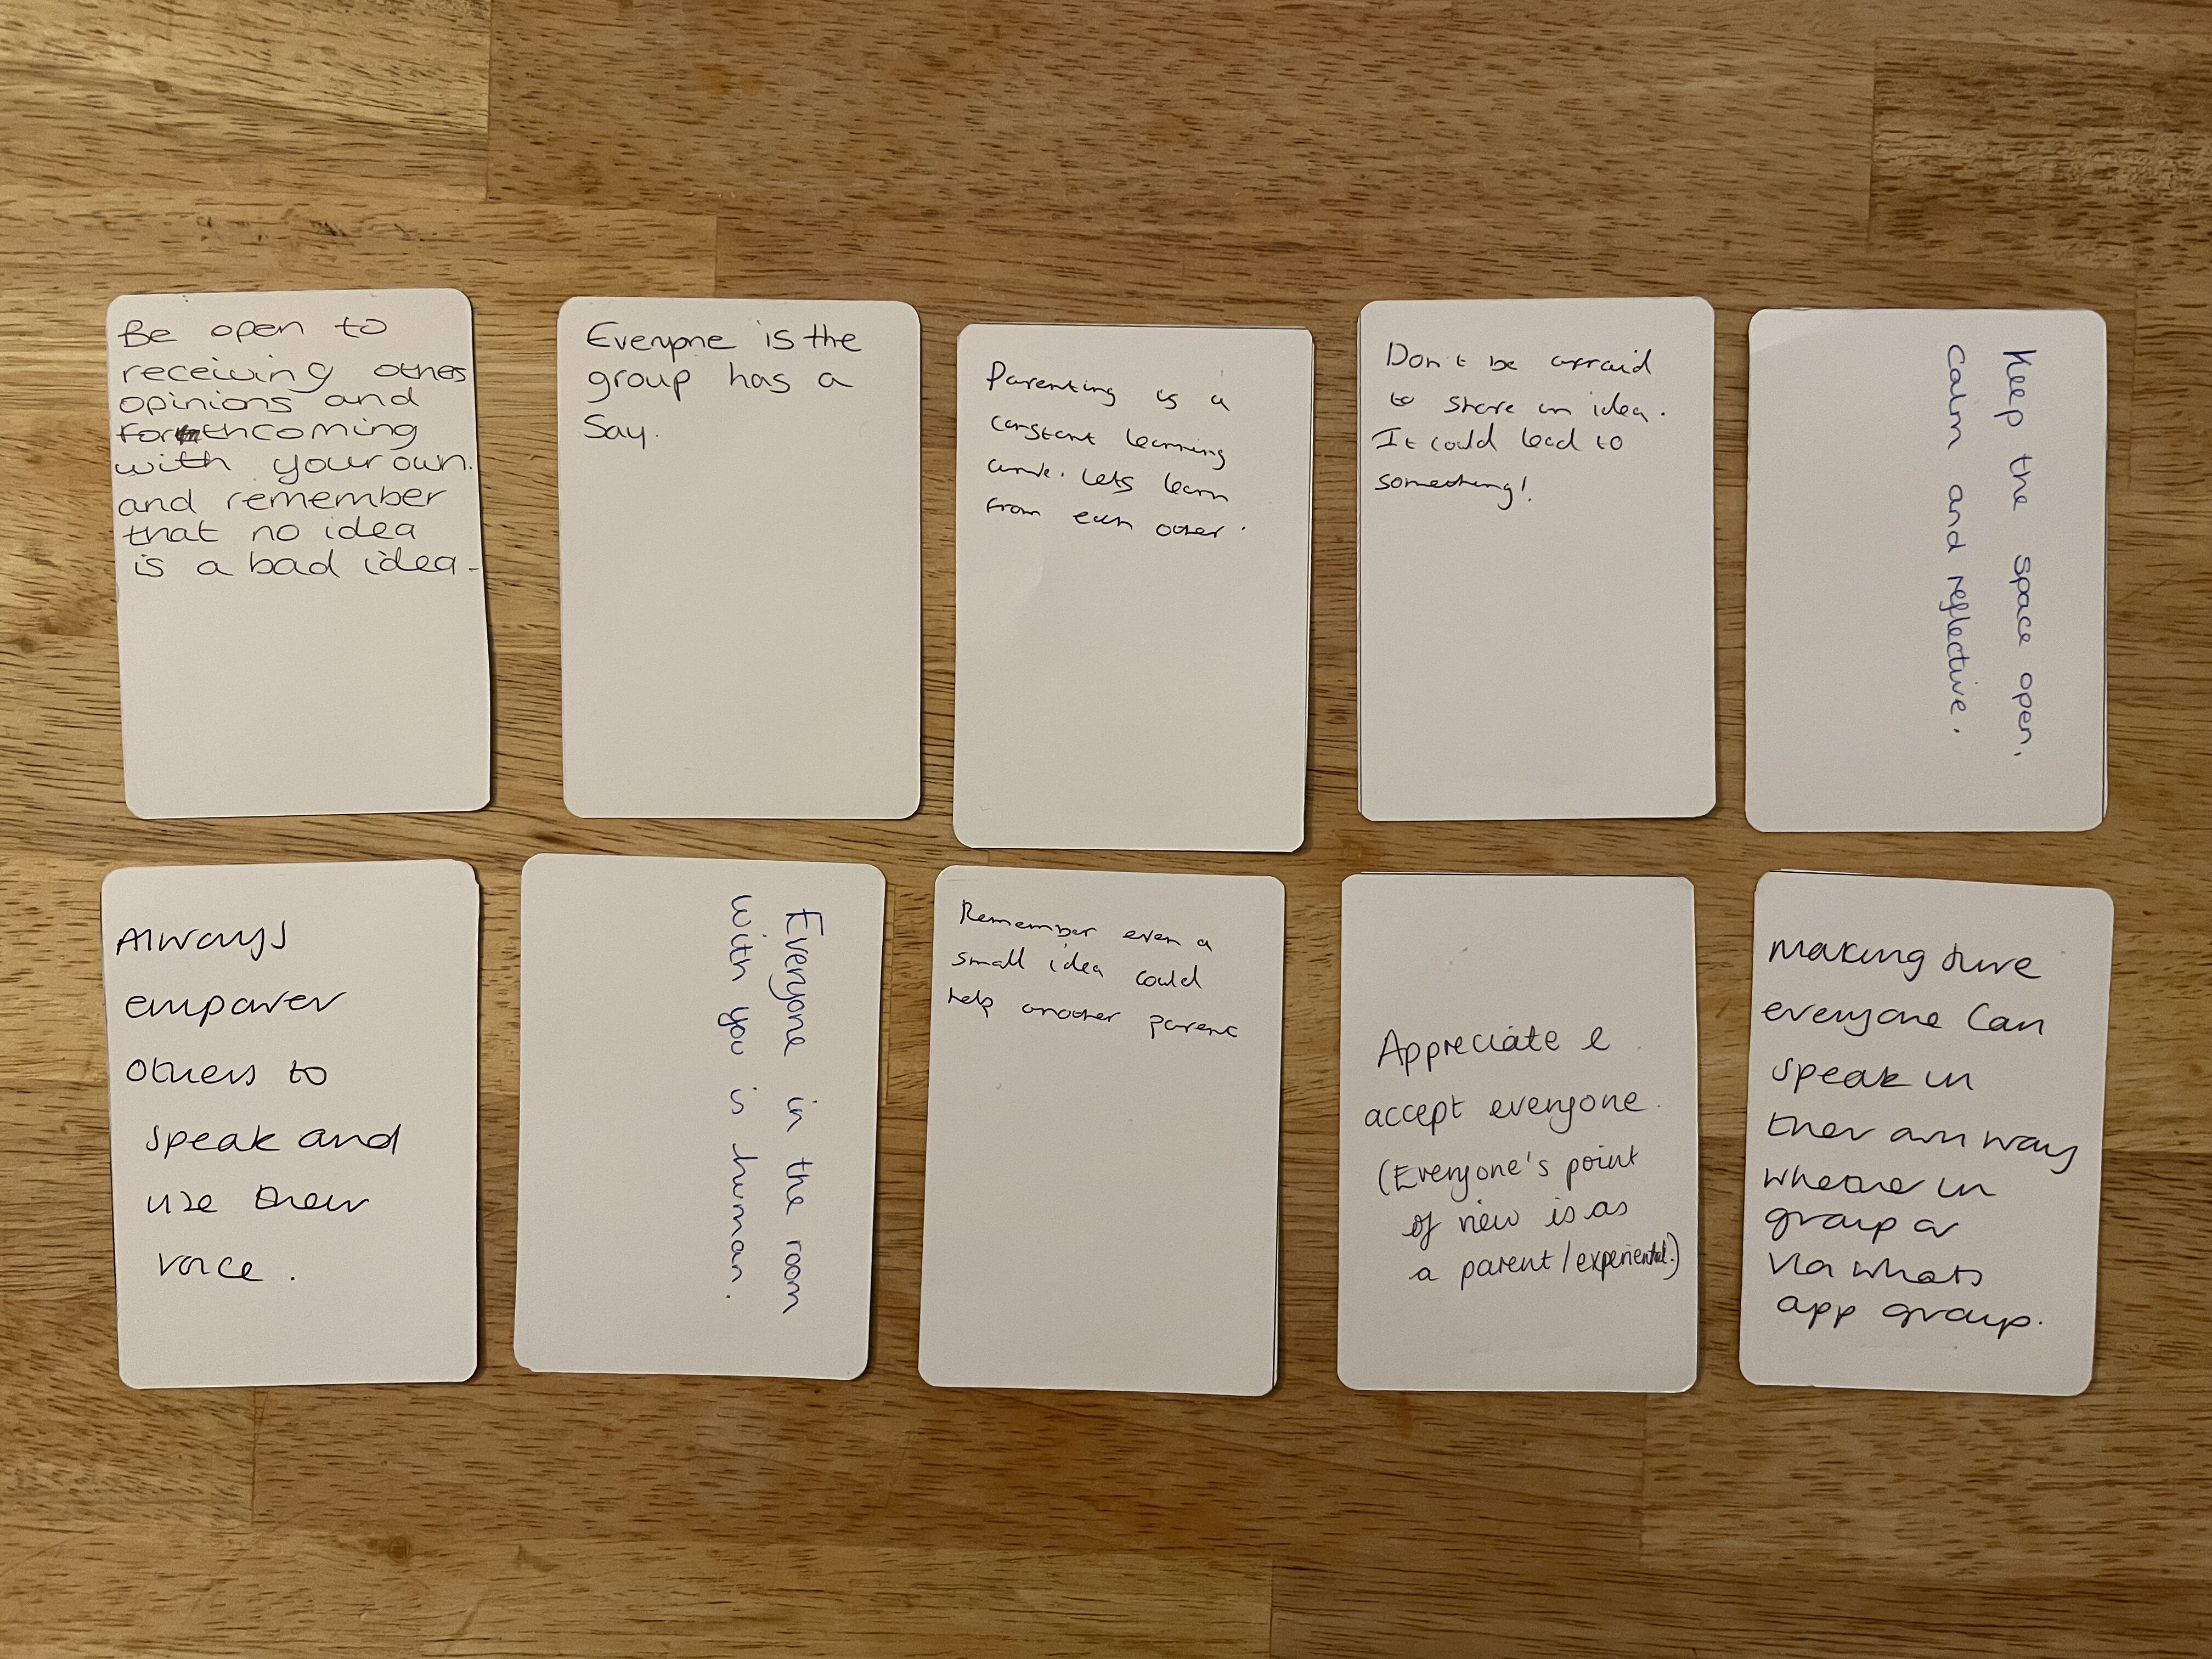 Be open to
receiving others
opinions and
forthcoming
with your own.
and remember
that no idea
is a bad idea.
Everyone is the
group has a
Say.
Parenting is a
constant learning
curve. Lets learn
from each other.
Don't be afraid
to share an idea.
It could lead to
something!
Keep the space open,
calm and reflective.
Always
empower
others to
speak and
use their
voice.
Everyone in the room
with you is human.
Remember even a
small idea could
help another parent
Appreciate &
accept everyone.
(Everyone's point
of view is as
a parent/experiential.)
making sure
everyone can
speak in
their own way
whether in
group or
via whats
app group.